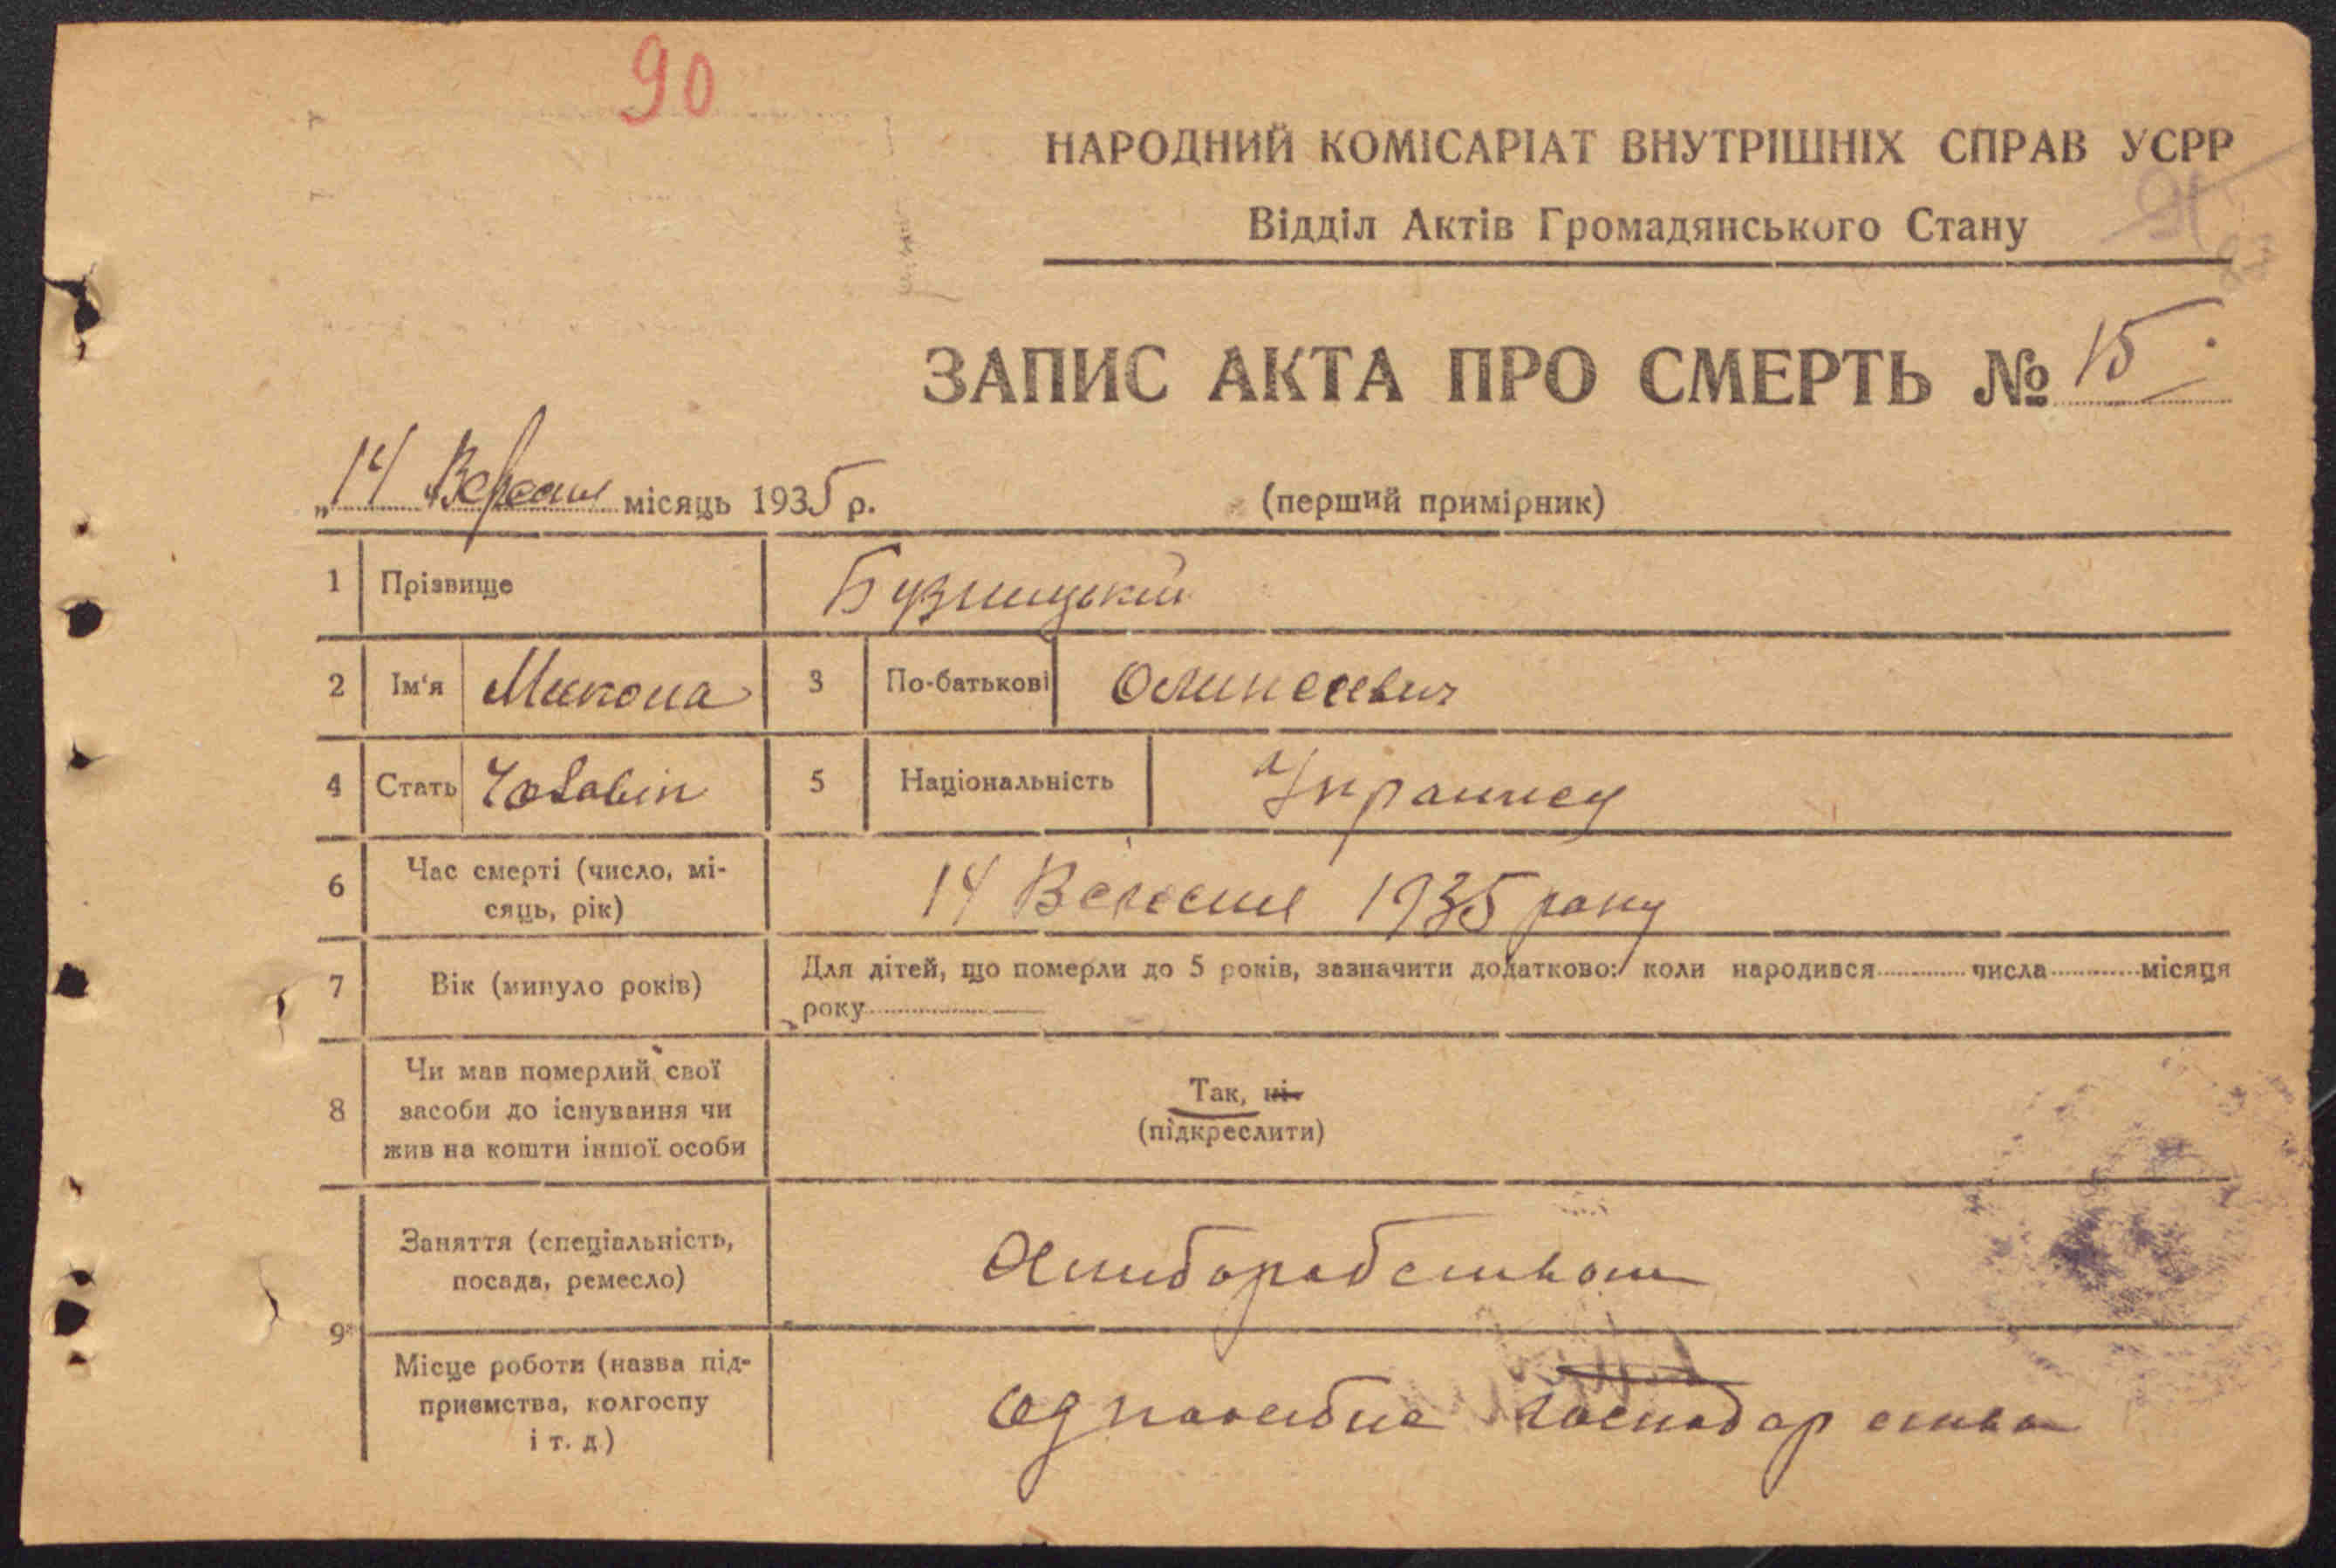 90
НАРОДНИЙ КОМІСАРІАТ ВНУТРІШНІХ СПРАВ УСРР
91
Відділ Актів Громадянського Стану
ЗАПИС АКТА ПРО СМЕРТЬ № 15
„14 Вересня місяць 1935 р.
(перший примірник)
1 Прізвище Бузницький
2 Ім'я Микола 3 По-батькові
4 Стать Чоловік 5 Національність Українец
6 Час смерті (число, мі-
сяць, рік)
14 Вересня 1935 року
7 Вік (минуло років) Для дітей, що померли до 5 років, зазначити додатково: коли народився числа місяця
року
8 Чи мав померлий свої
засоби до існування чи
жив на кошти іншої особи
Так, ні
(підкреслити)
9 Заняття (спеціальність,
посада, ремесло)
Місце роботи (назва під-
приємства, колгоспу
і т. д.)
господарства